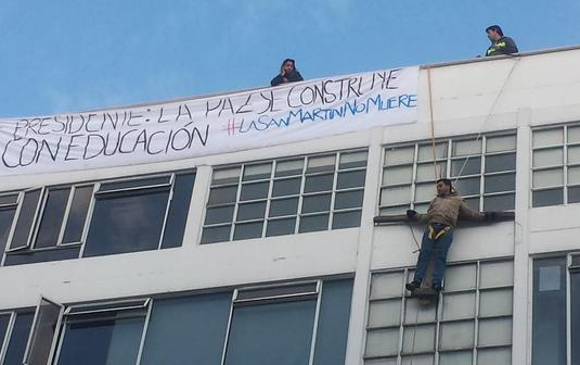 PRESIDENTE: LA PAZ SE CONSTRUYE
CON EDUCACIÓN #LASANMARTINNOMUERE